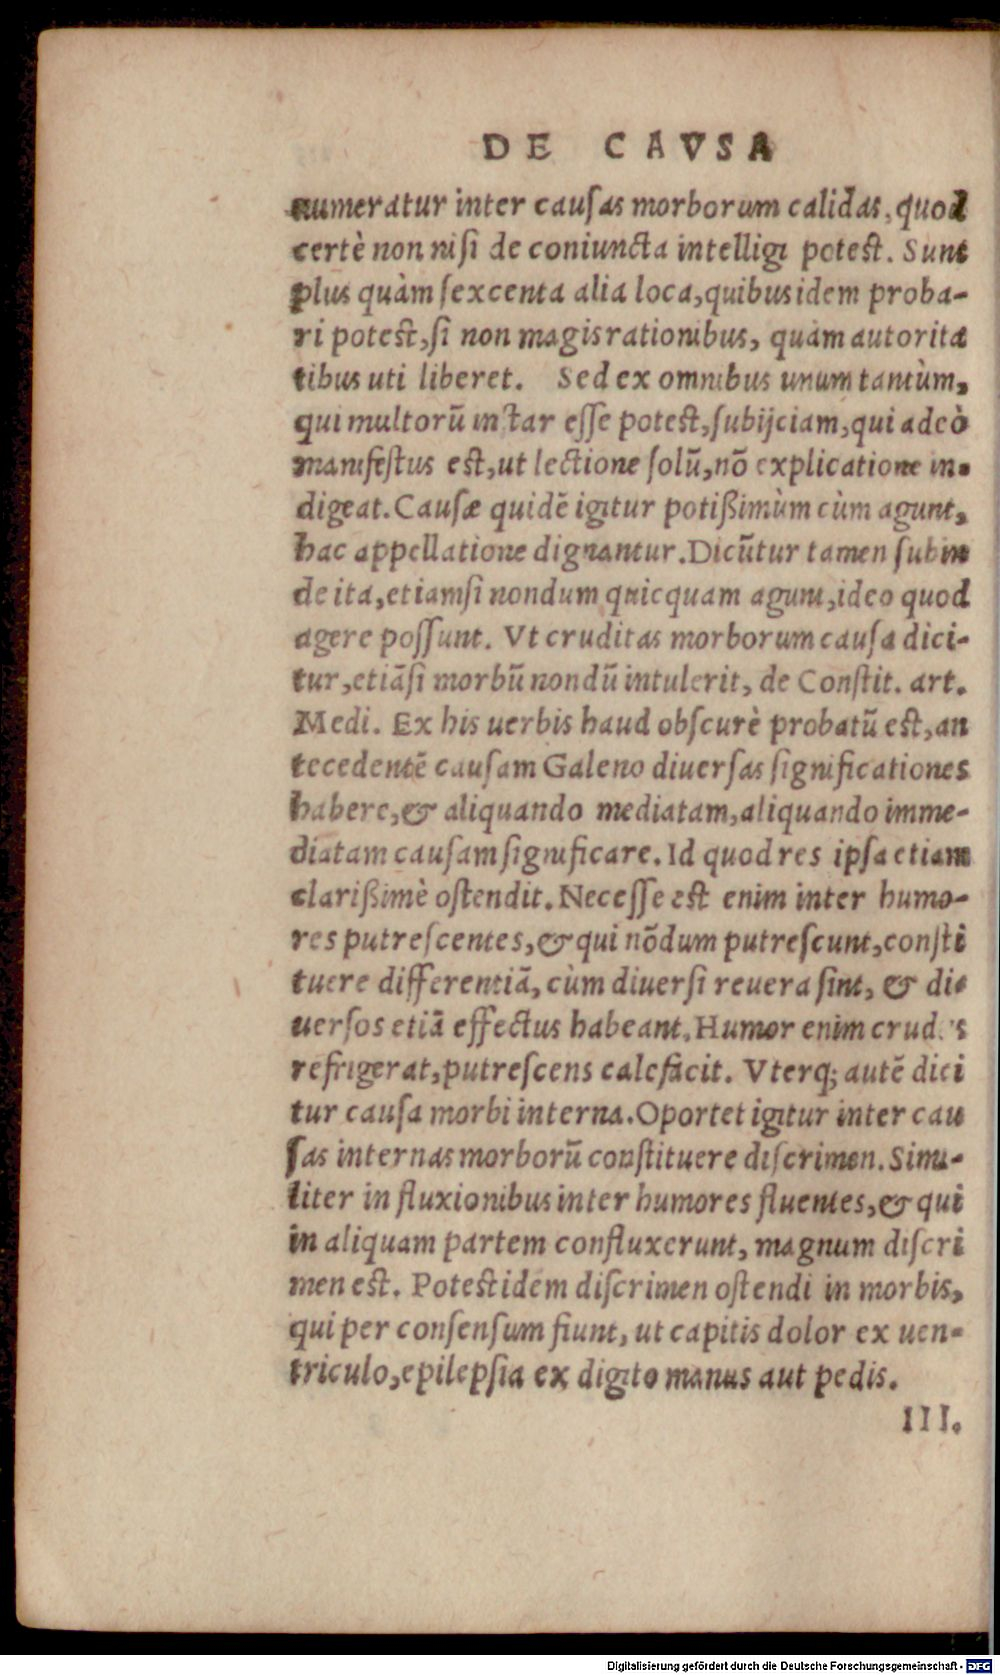 DE CAVSA
numeratur inter cauſas morborum calidas, quod
certè non niſi de coniuncta intelligi potest. Sunt
plus quàm ſexcenta alia loca, quibus idem proba-
ri potest, ſi non magis rationibus, quàm autorita
tibus uti liberet. Sed ex omnibus unum tantùm,
qui multorũ instar eſſe potest, ſubijciam, qui adeò
manifeſtus est, ut lectione ſolũ, nõ explicatione in-
digeat. Cauſæ quidẽ igitur potißimùm cùm agunt,
hac appellatione dignantur. Dicũtur tamen ſubin
de ita, etiamſi nondum quicquam agunt, ideo quod
agere poſſunt. Vt cruditas morborum cauſa dici-
tur, etiãſi morbũ nondũ intulerit, de Conſtit. art.
Medi. Ex his uerbis haud obſcurè probatũ est, an
tecedentẽ cauſam Galeno diuerſas ſignificationes
habere, & aliquando mediatam, aliquando imme-
diatam cauſam ſignificare. Id quod res ipſa etiam
clarißimè oſtendit. Neceſſe est enim inter humo-
res putreſcentes, & qui nõdum putreſcunt, conſti
tuere differentiã, cùm diuerſi reuera ſint, & di-
uerſos etiã effectus habeant. Humor enim crudus
refrigerat, putreſcens calefacit. Vterq; autẽ dici
tur cauſa morbi interna. Oportet igitur inter cau
ſas internas morborũ conſtituere diſcrimen. Simi-
liter in fluxionibus inter humores fluentes, & qui
in aliquam partem confluxerunt, magnum diſcri
men est. Potest idem diſcrimen oſtendi in morbis,
qui per conſenſum fiunt, ut capitis dolor ex uen-
triculo, epilepſia ex digito manus aut pedis.
III.
Digitalisierung gefördert durch die Deutsche Forschungsgemeinschaft - DFG